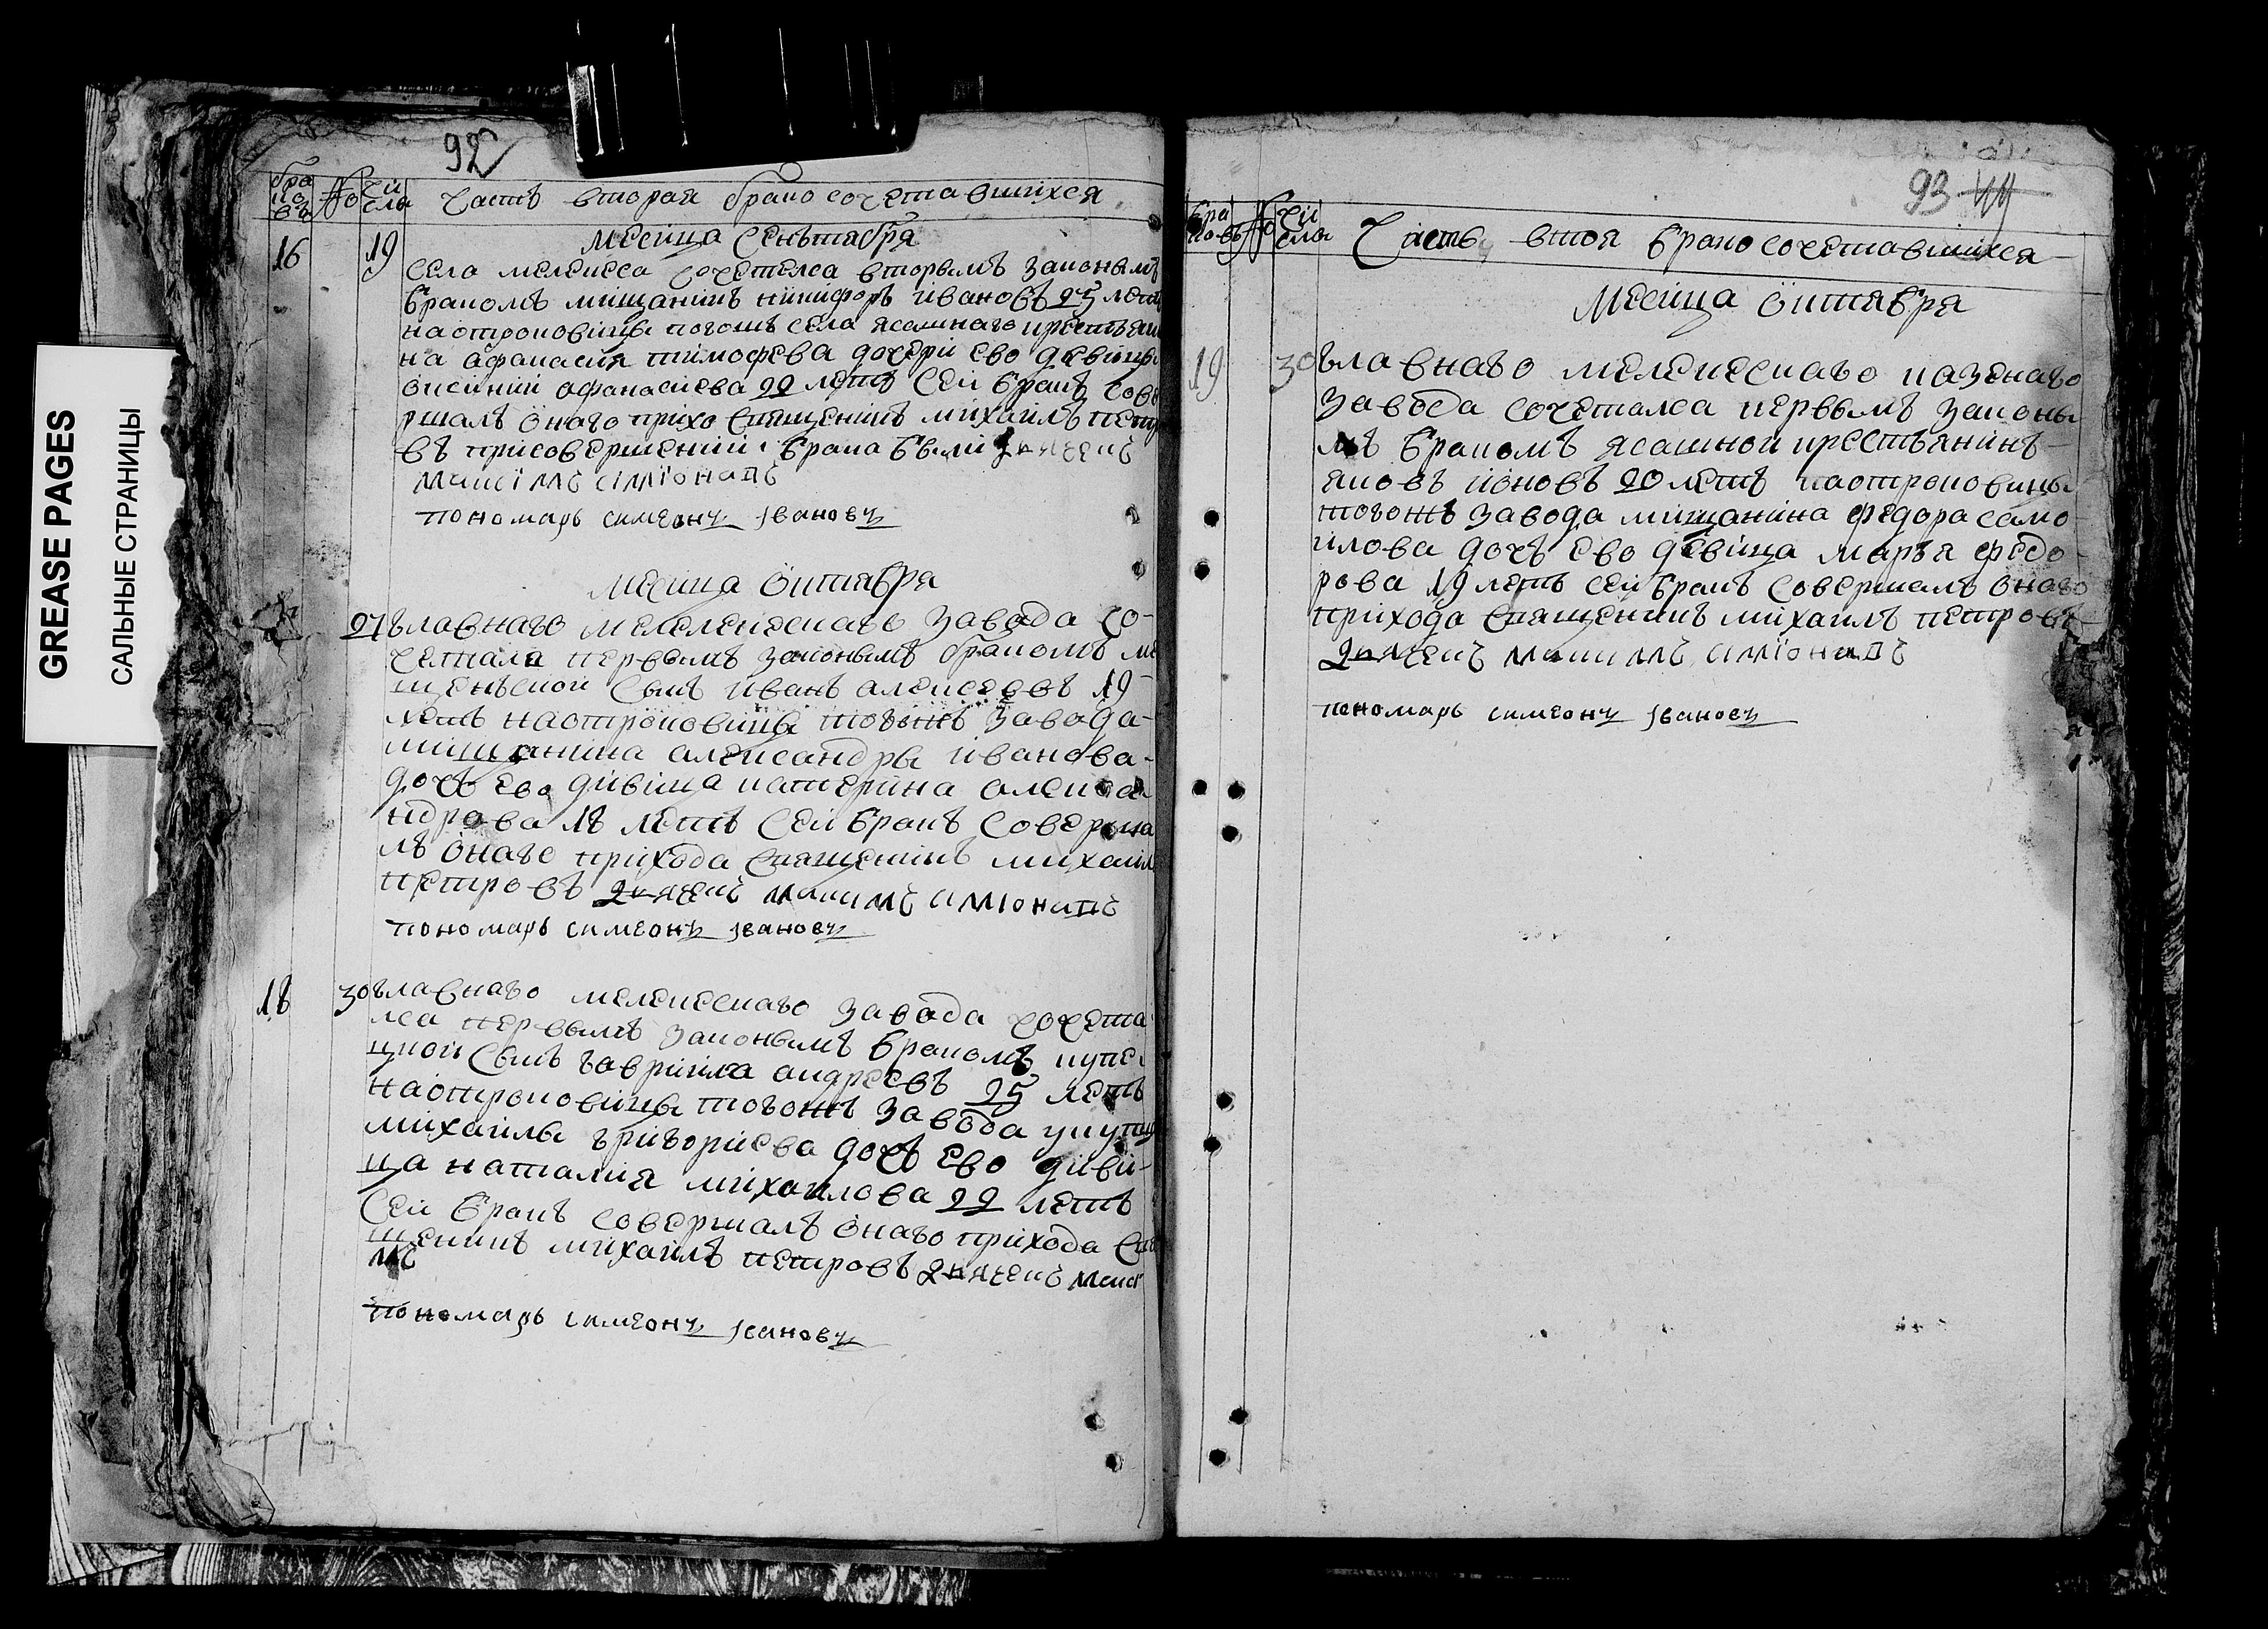 GREASE PAGES
САЛЬНЫЕ СТРАНИЦЫ
92
бра
ко
въ
No
чи
сла
часть вторая брако сочетавшихся
Месица Сеньтабря
16
19
села мелекеса сочетелса вторымъ законымъ
бракомъ мищанинъ никифоръ ивановъ 25 летъ
наотроковицы тогожъ села ясашнаго крестьяни
на афанасия тимофева дочери ево девицы
афанасиева 22 летъ Сеи бракъ Сове
ршалъ онаго прихо Священикъ михаилъ петро
въ присовершении брака были дьячекъ
максимъ
пономарь симеонъ Iвановъ
Месица Октабря
27
главнаго мелелекескаго завада со-
четалса первымъ законымъ бракомъ ме
щенъской Сынъ иванъ алексеевъ 19
летъ наотроковице тогожъ завада
мищанина александры иванова
дочь ево дивица катерина алекса
ндрова 18 летъ Сеи бракъ Соверша
лъ онаго прихода Священикъ михаил
петровъ дьячекъ максимъ
пономарь симеонъ Iвановъ
18
30
главнаго мелекескаго завада сочета
лса первымъ законымъ бракомъ купе
цкои Сынъ гаврила андреевъ 25 летъ
наотроковицы тогожъ завода
михаилы григориева дочь ево диви-
ца наталия михаилова 22 летъ
Сеи бракъ совершалъ онаго прихода Свя
щеникъ михаилъ петровъ дьячекъ макси
мъ
пономарь симеонъ Iвановъ
93
бра
ко-въ
No
чи
сла
Часть втоя брако сочетавшихся
Месица октября
19
30
главнаго мелекескаго казенаго
завода сочеталса первымъ законы
мъ бракомъ ясашной крестьянинъ
яковъ ионовъ 20 летъ наотроковицы
тогожъ завода мищанина федора само
илова дочь ево девица марья федо
рова 19 летъ сеи бракъ Совершалъ онаго
прихода Священикъ михаилъ петровъ
дьячекъ максимъ
пономарь симеонъ Iвановъ